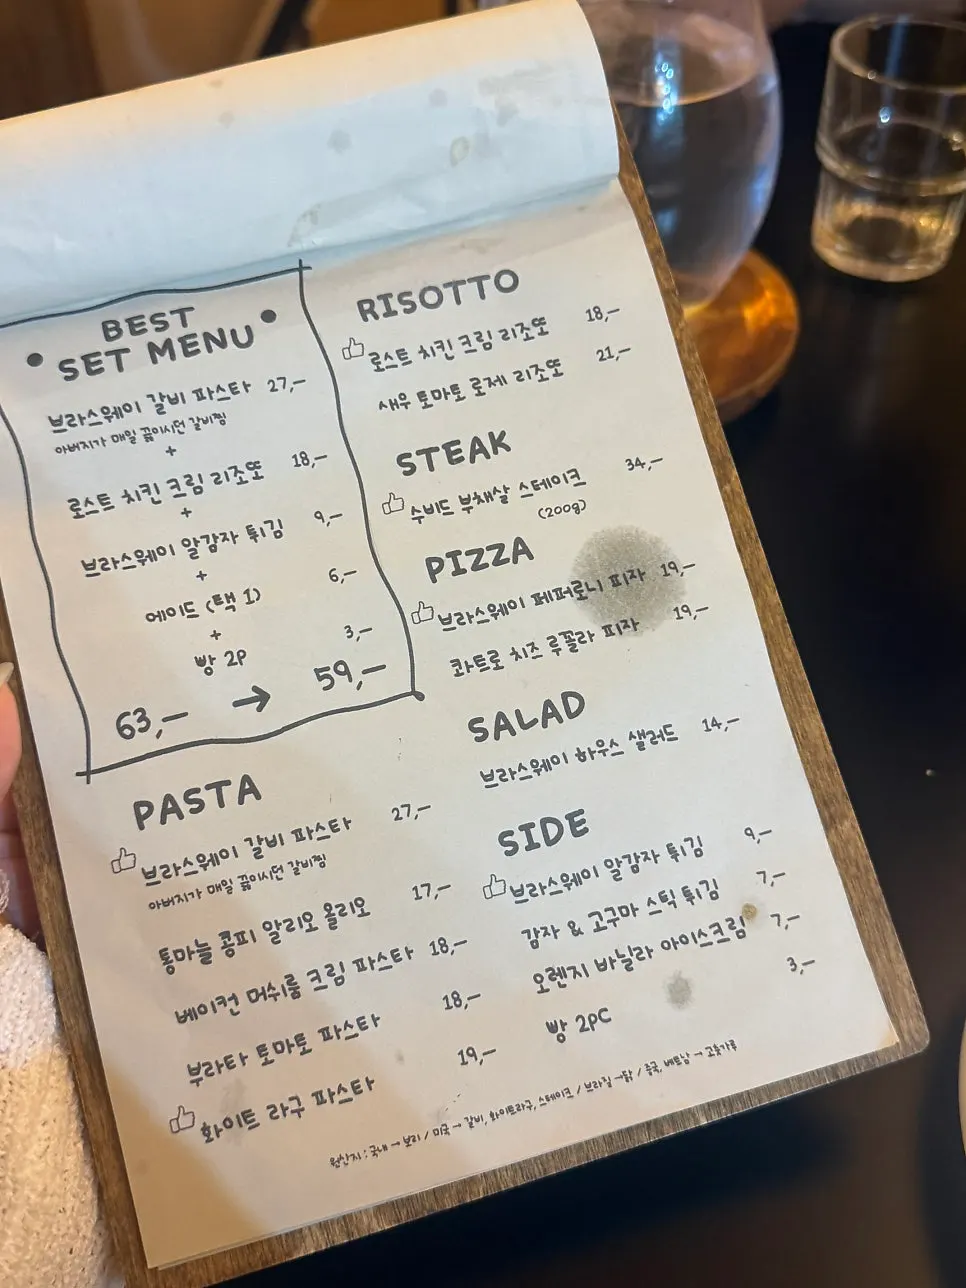 BEST
SET MENU
브라스웨이 갈비 파스타 27,-
아버지가 매일 끓이시던 갈비찜
+
로스트 치킨 크림 리조또 18,-
+
브라스웨이 알감자 튀김 9,-
+
에이드 (택 1) 6,-
+
빵 2P 3,-
63,- → 59,-
PASTA
브라스웨이 갈비 파스타 27,-
아버지가 매일 끓이시던 갈비찜
통마늘 콩피 알리오 올리오 17,-
베이컨 머쉬룸 크림 파스타 18,-
부라타 토마토 파스타 18,-
화이트 라구 파스타 19,-
RISOTTO
로스트 치킨 크림 리조또 18,-
새우 토마토 로제 리조또 21,-
STEAK
수비드 부채살 스테이크 34,-
(200g)
PIZZA
브라스웨이 페퍼로니 피자 19,-
콰트로 치즈 루꼴라 피자 19,-
SALAD
브라스웨이 하우스 샐러드 14,-
SIDE
브라스웨이 알감자 튀김 9,-
감자 & 고구마 스틱 튀김 7,-
오렌지 바닐라 아이스크림 7,-
빵 2PC 3,-
원산지 : 국내 → 보리 / 미국 → 갈비, 화이트라구, 스테이크 / 브라질 → 닭 / 중국, 베트남 → 고춧가루